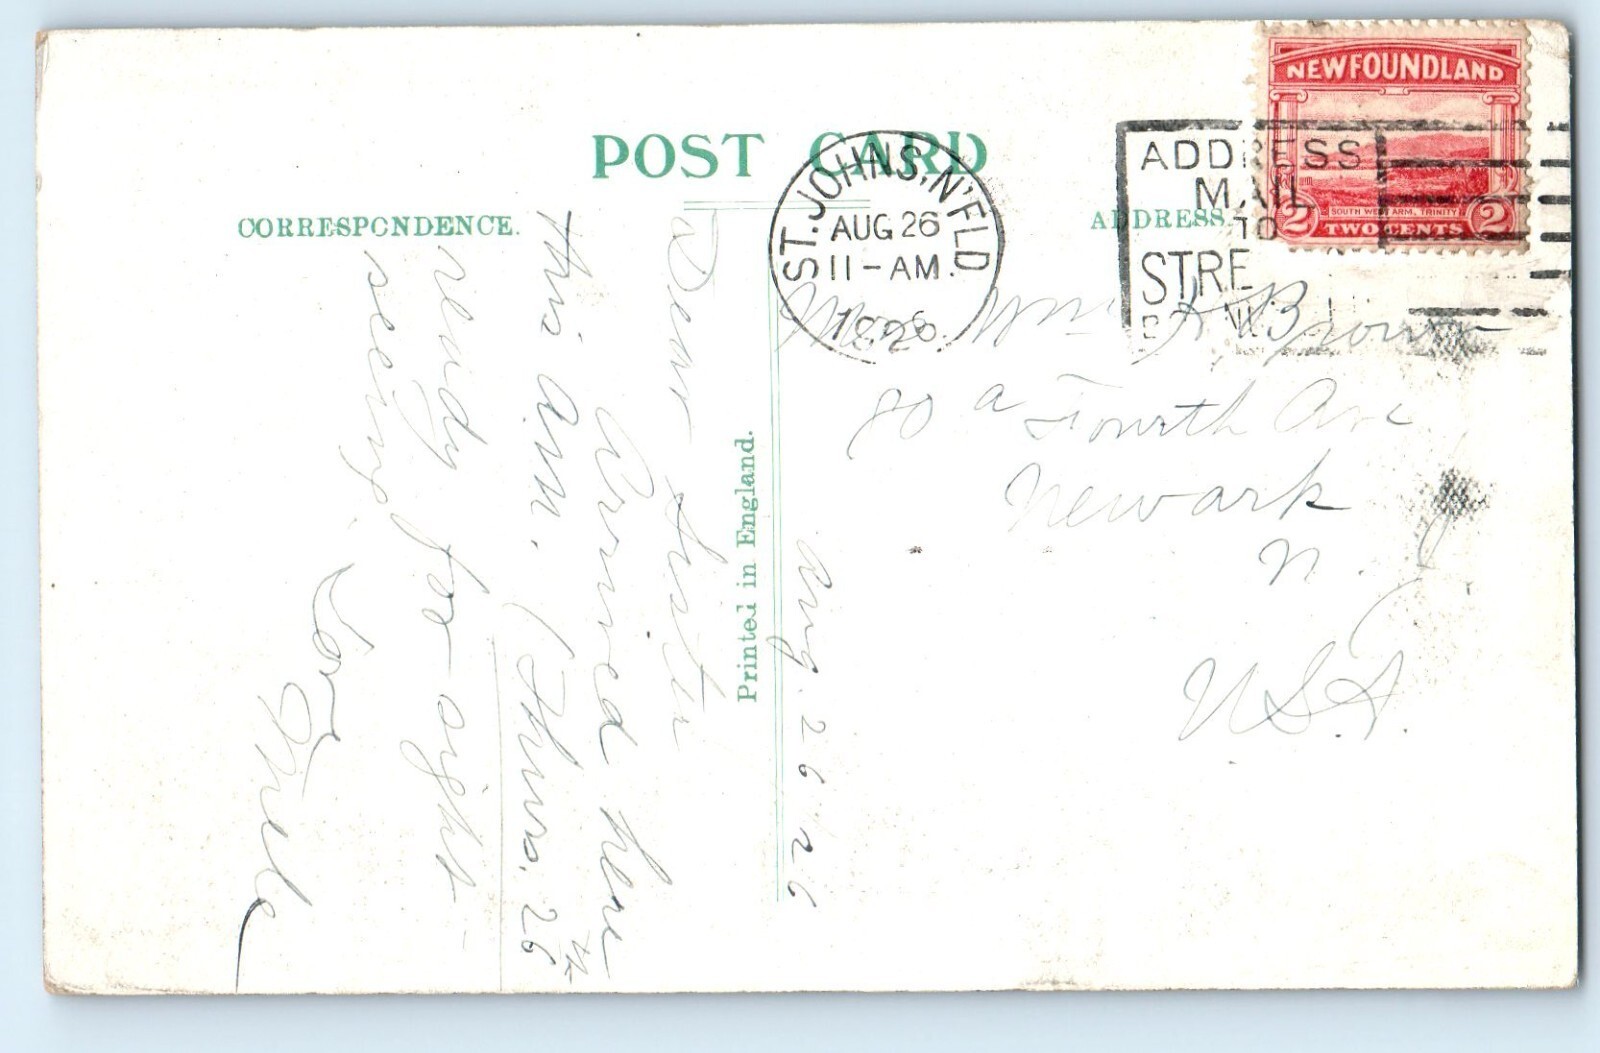 POST CARD
CORRESPONDENCE.
ADDRESS.
NEWFOUNDLAND
SOUTH WEST ARM, TRINITY
2 TWO CENTS 2
ST. JOHN'S, N'F'LD.
AUG 26
11-AM
1926
ADDRESS
MAIL
TO
STRE
Dear Sister
Arrived here
this a.m. (Thurs. 26th
ready for sight-
seeing.
Love
Printed in England.
Aug. 26 '26
Mrs. Wm. A Brown
80 a Fourth Ave
Newark
N. J.
U.S.A.